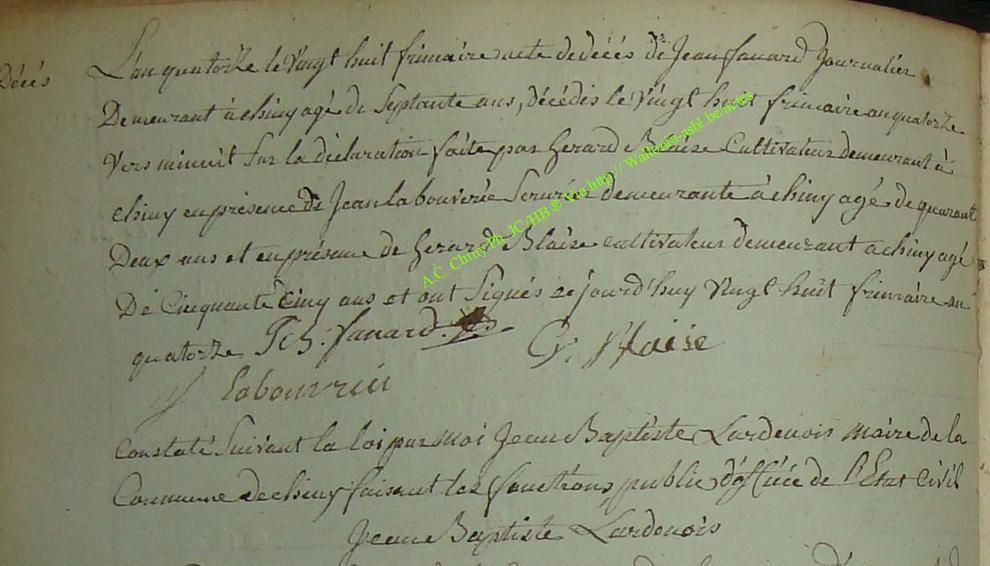 Décés
L'an quatorze le vingt huit frimaire acte de décés de Jean fanard Journalier
Demeurant à chiny agé de Septante ans, décédés le vingt huit frimaire an quatorze
Vers minuit Sur la déclaration faite par Gerard Blaise Cultivateur demeurant à
chiny en présence de Jean la bouverie demeurante à chiny agé de quarant
Deux ans et en présence de Gerard Blaise cultivateur demeurant a chiny agé
De Cinquante Cinq ans et ont Signés cejourd'huy vingt huit frimaire an
quatorze fanard G. Blaise
Labouverie
Constaté Suivant la loi par moi Jean Baptiste Lardenois maire de la
Commune de chiny faisant les fonctions public d'officiée de l'Etat Civil
Jean Baptiste Lardenois
A.C. Chiny Ph. JC./HB @ via http:// Wallonia-asbl.be/actes